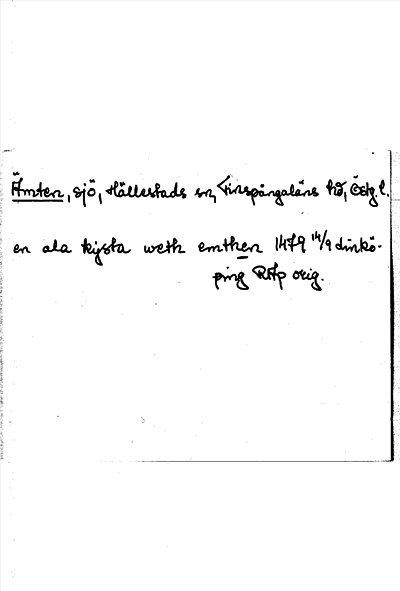 Ämten, sjö, Hällestads sn, Finspångaläns hd, Östg. l.
en ala kijsta weth emthen 1479 14/9 Linkö-
ping RAp orig.